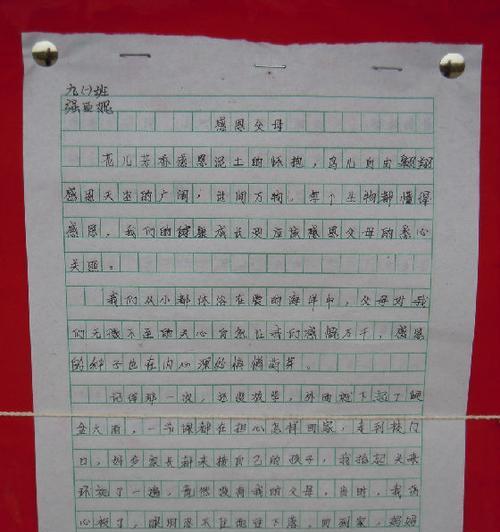 九(一)班
感恩父母
花儿芳香感恩泥土的怀抱，鸟儿自由翱翔
感恩天空的广阔，世间万物，每个生物都懂得
感恩，我们的健康成长更应该感恩父母的悉心
关照。
我们从小都沐浴在爱的海洋中，父母对我
们无微不至的关心自然让我们感慨万千，感恩
的种子也在内心深处悄悄萌芽。
记得那一次，还没放学，外面就下起了倾
盆大雨，一节课都在担心怎样回家，走到校门
口，好多家长都来接自己的孩子，我抬起头来
环视了一遍，竟然没有我的父母，当时，我伤
心极了，眼泪忍不住地往下落，回到家，妈妈